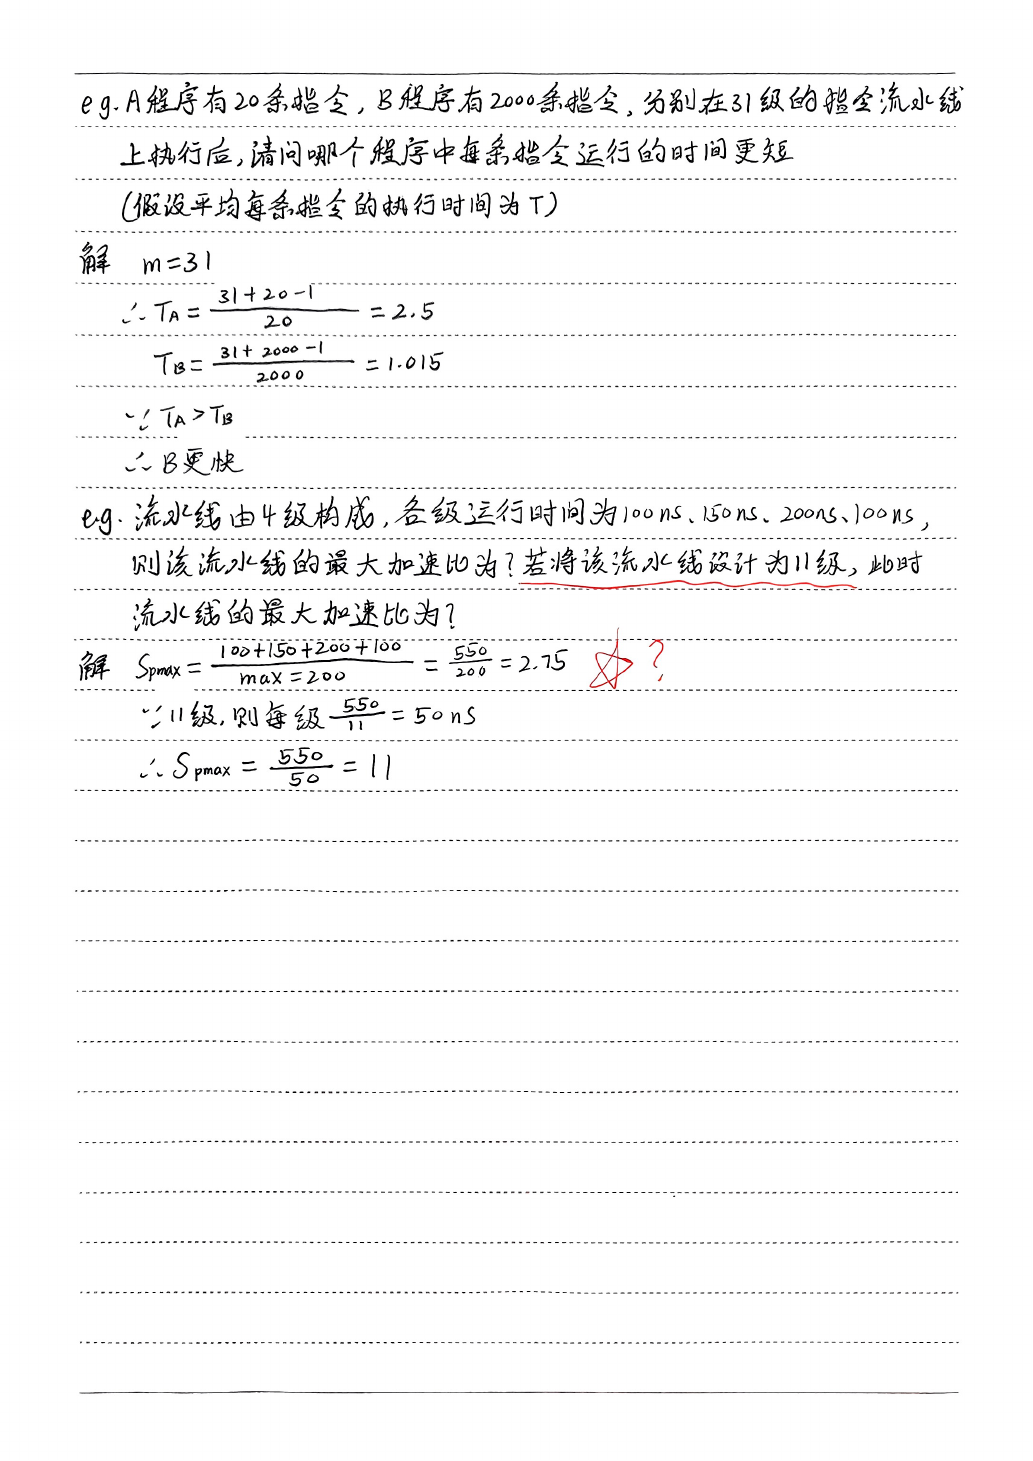 e.g. A程序有20条指令, B程序有2000条指令, 分别在31级的指令流水线
上执行后, 请问哪个程序中每条指令运行的时间更短
(假设平均每条指令的执行时间为T)
解 m=31
∴ TA = (31+20-1)/20 = 2.5
TB = (31+2000-1)/2000 = 1.015
∵ TA > TB
∴ B更快
e.g. 流水线由4级构成, 各级运行时间为100ns、150ns、200ns、100ns,
则该流水线的最大加速比为? 若将该流水线设计为11级, 此时
流水线的最大加速比为?
解 Spmax = (100+150+200+100)/(max=200) = 550/200 = 2.75 ?
∵ 11级, 则每级 550/11 = 50ns
∴ Spmax = 550/50 = 11